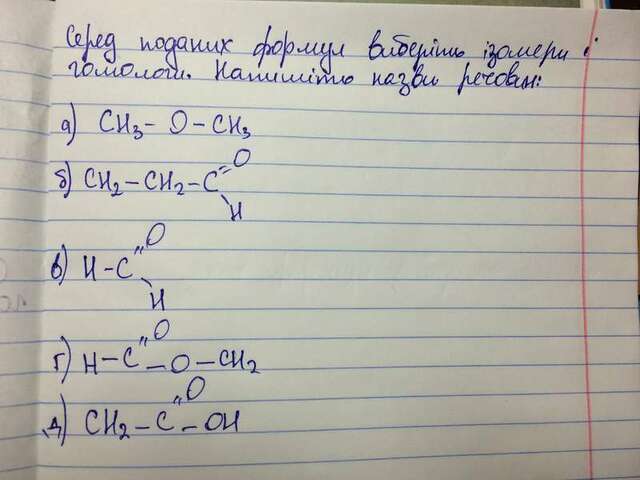 Серед поданих формул виберіть ізомери і
гомологи. Напишіть назви речовин:
а) CH₃ – O – CH₃
б) CH₂ – CH₂ – C = O
\ H
в) H – C = O
\ H
г) H – C = O – O – CH₂
д) CH₂ – C = O – OH